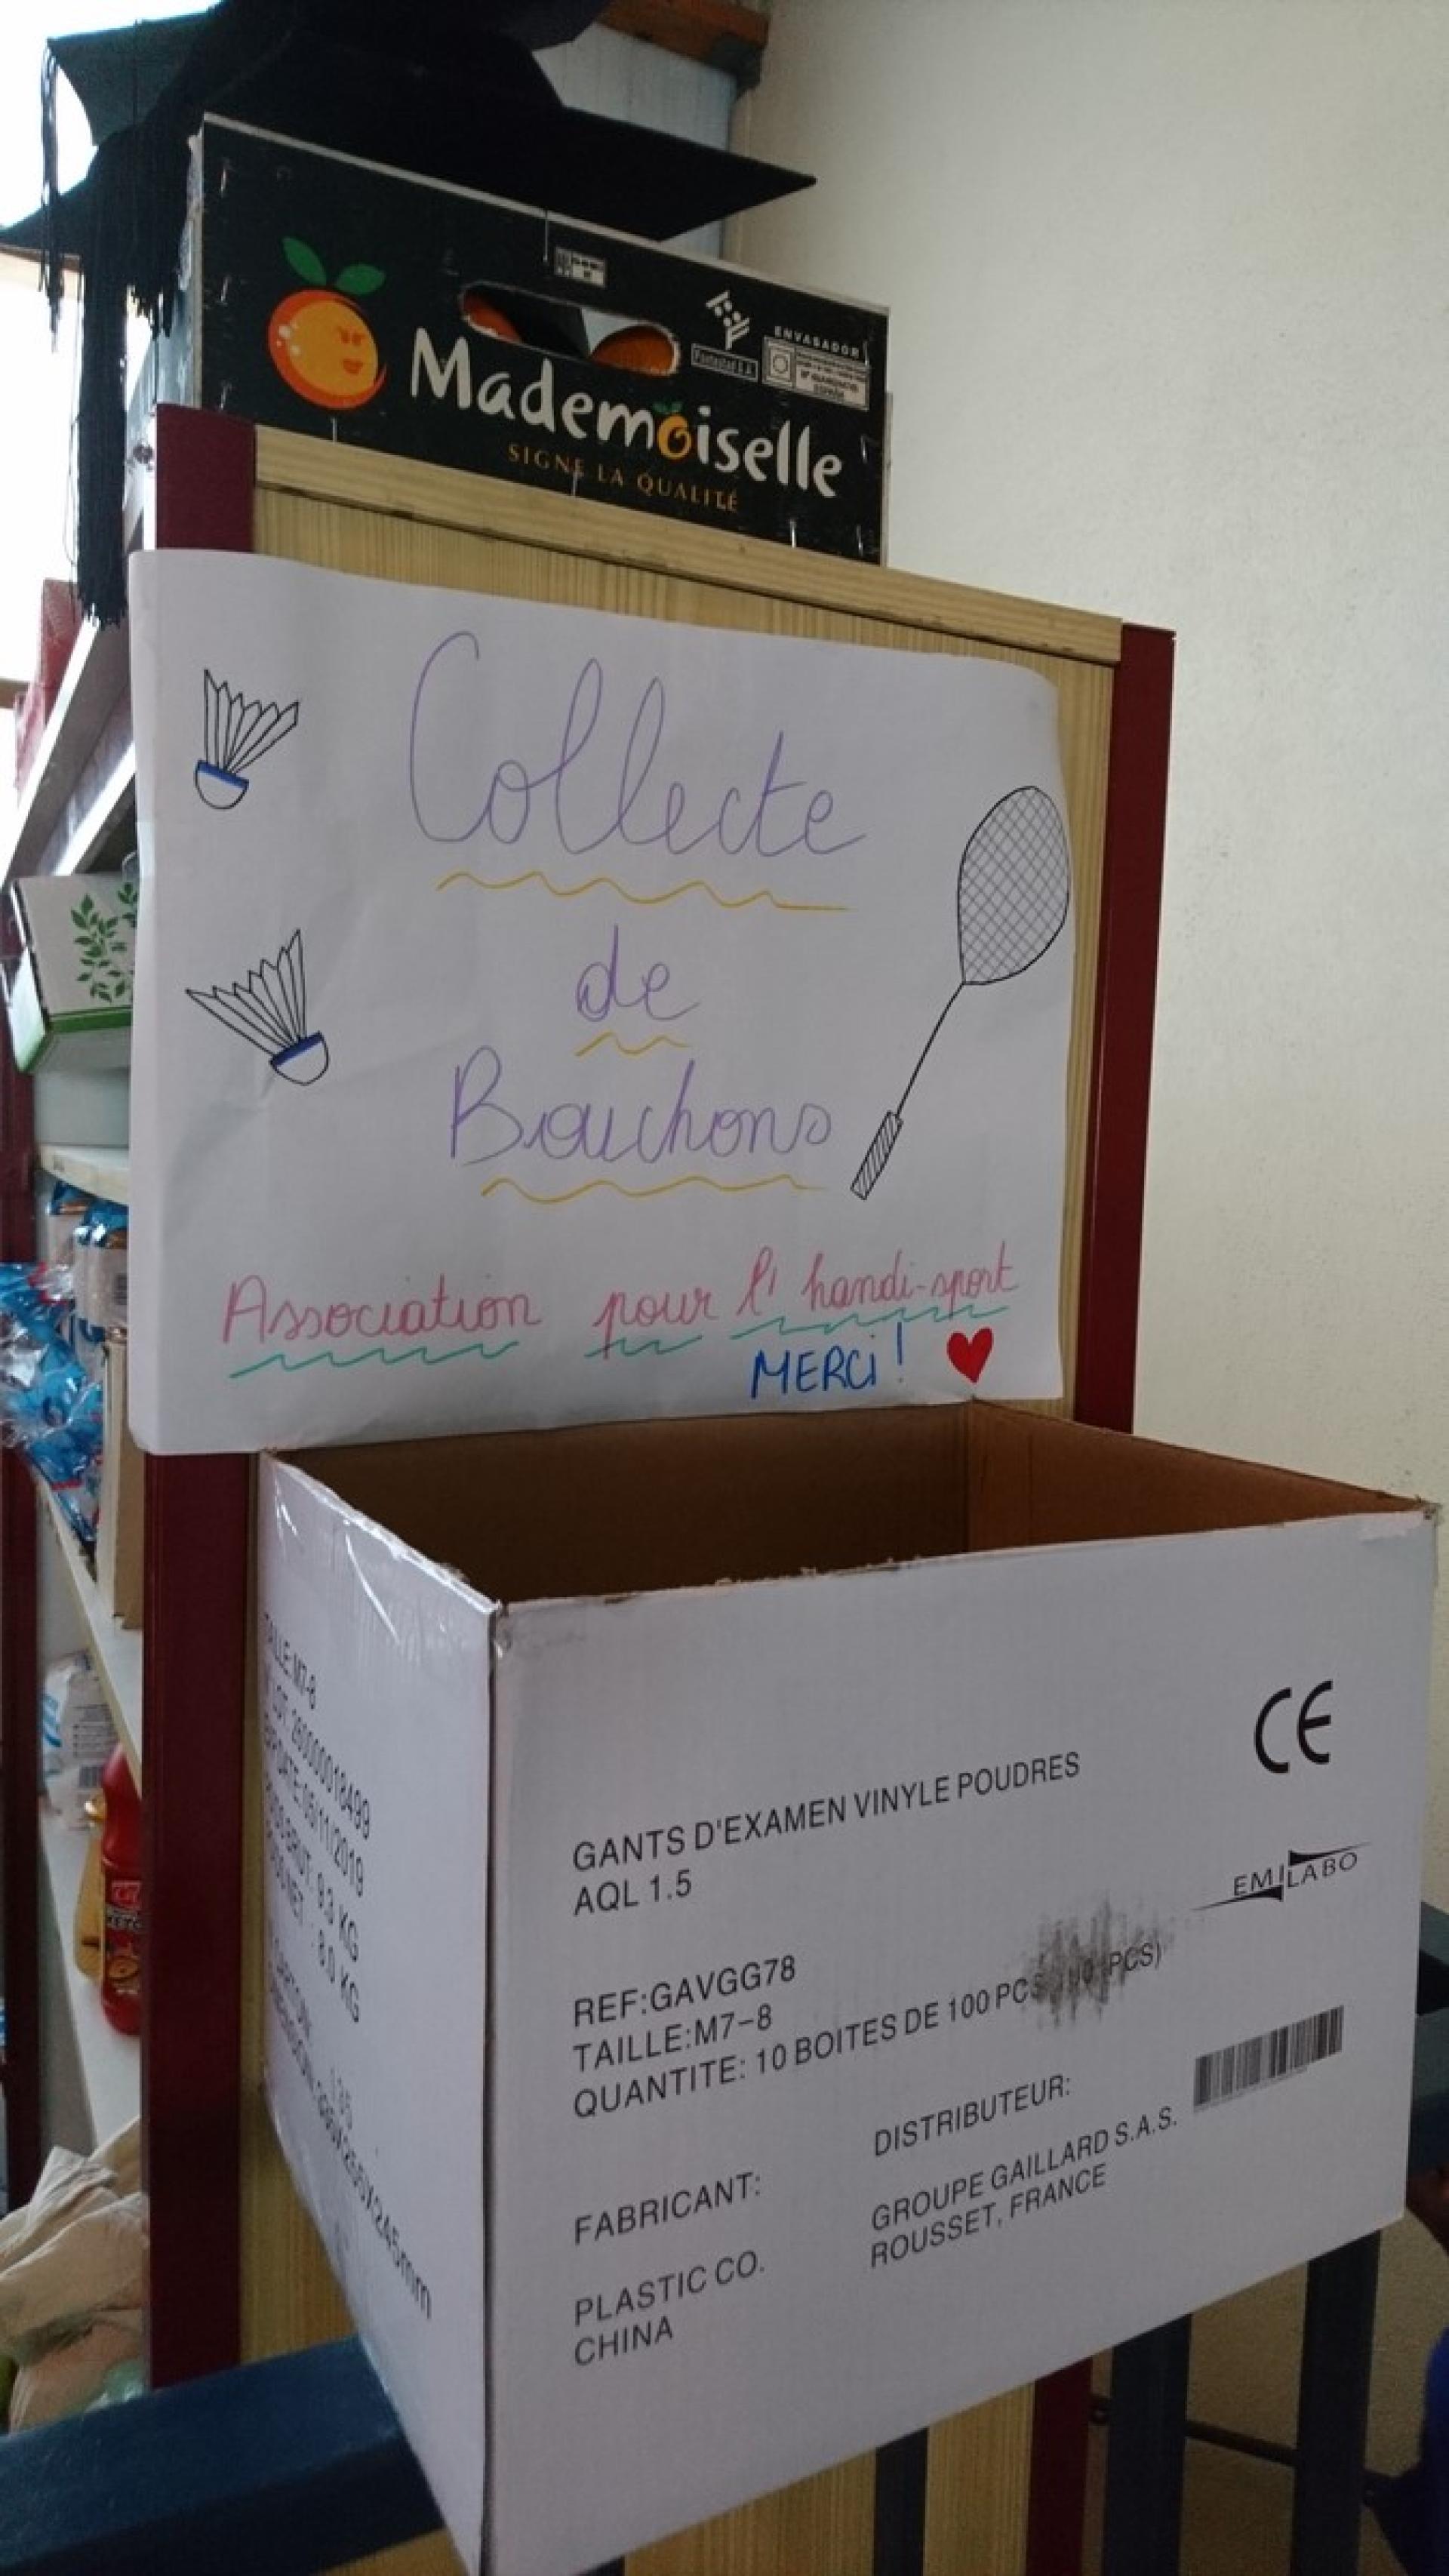 Mademoiselle
SIGNE LA QUALITÉ
ENVASADOR
Collecte
de
Bouchons
Association pour l'handi-sport
MERCi !
TAILLE:M7-8
LOT: 260000018499
DATE:05/11/2019
BRUT: 9.3 KG
NET : 8.0 KG
CE
GANTS D'EXAMEN VINYLE POUDRES
AQL 1.5
EMILABO
REF:GAVGG78
TAILLE:M7-8
QUANTITE: 10 BOITES DE 100 PCS PCS)
DISTRIBUTEUR:
GROUPE GAILLARD S.A.S.
ROUSSET, FRANCE
FABRICANT:
PLASTIC CO.
CHINA